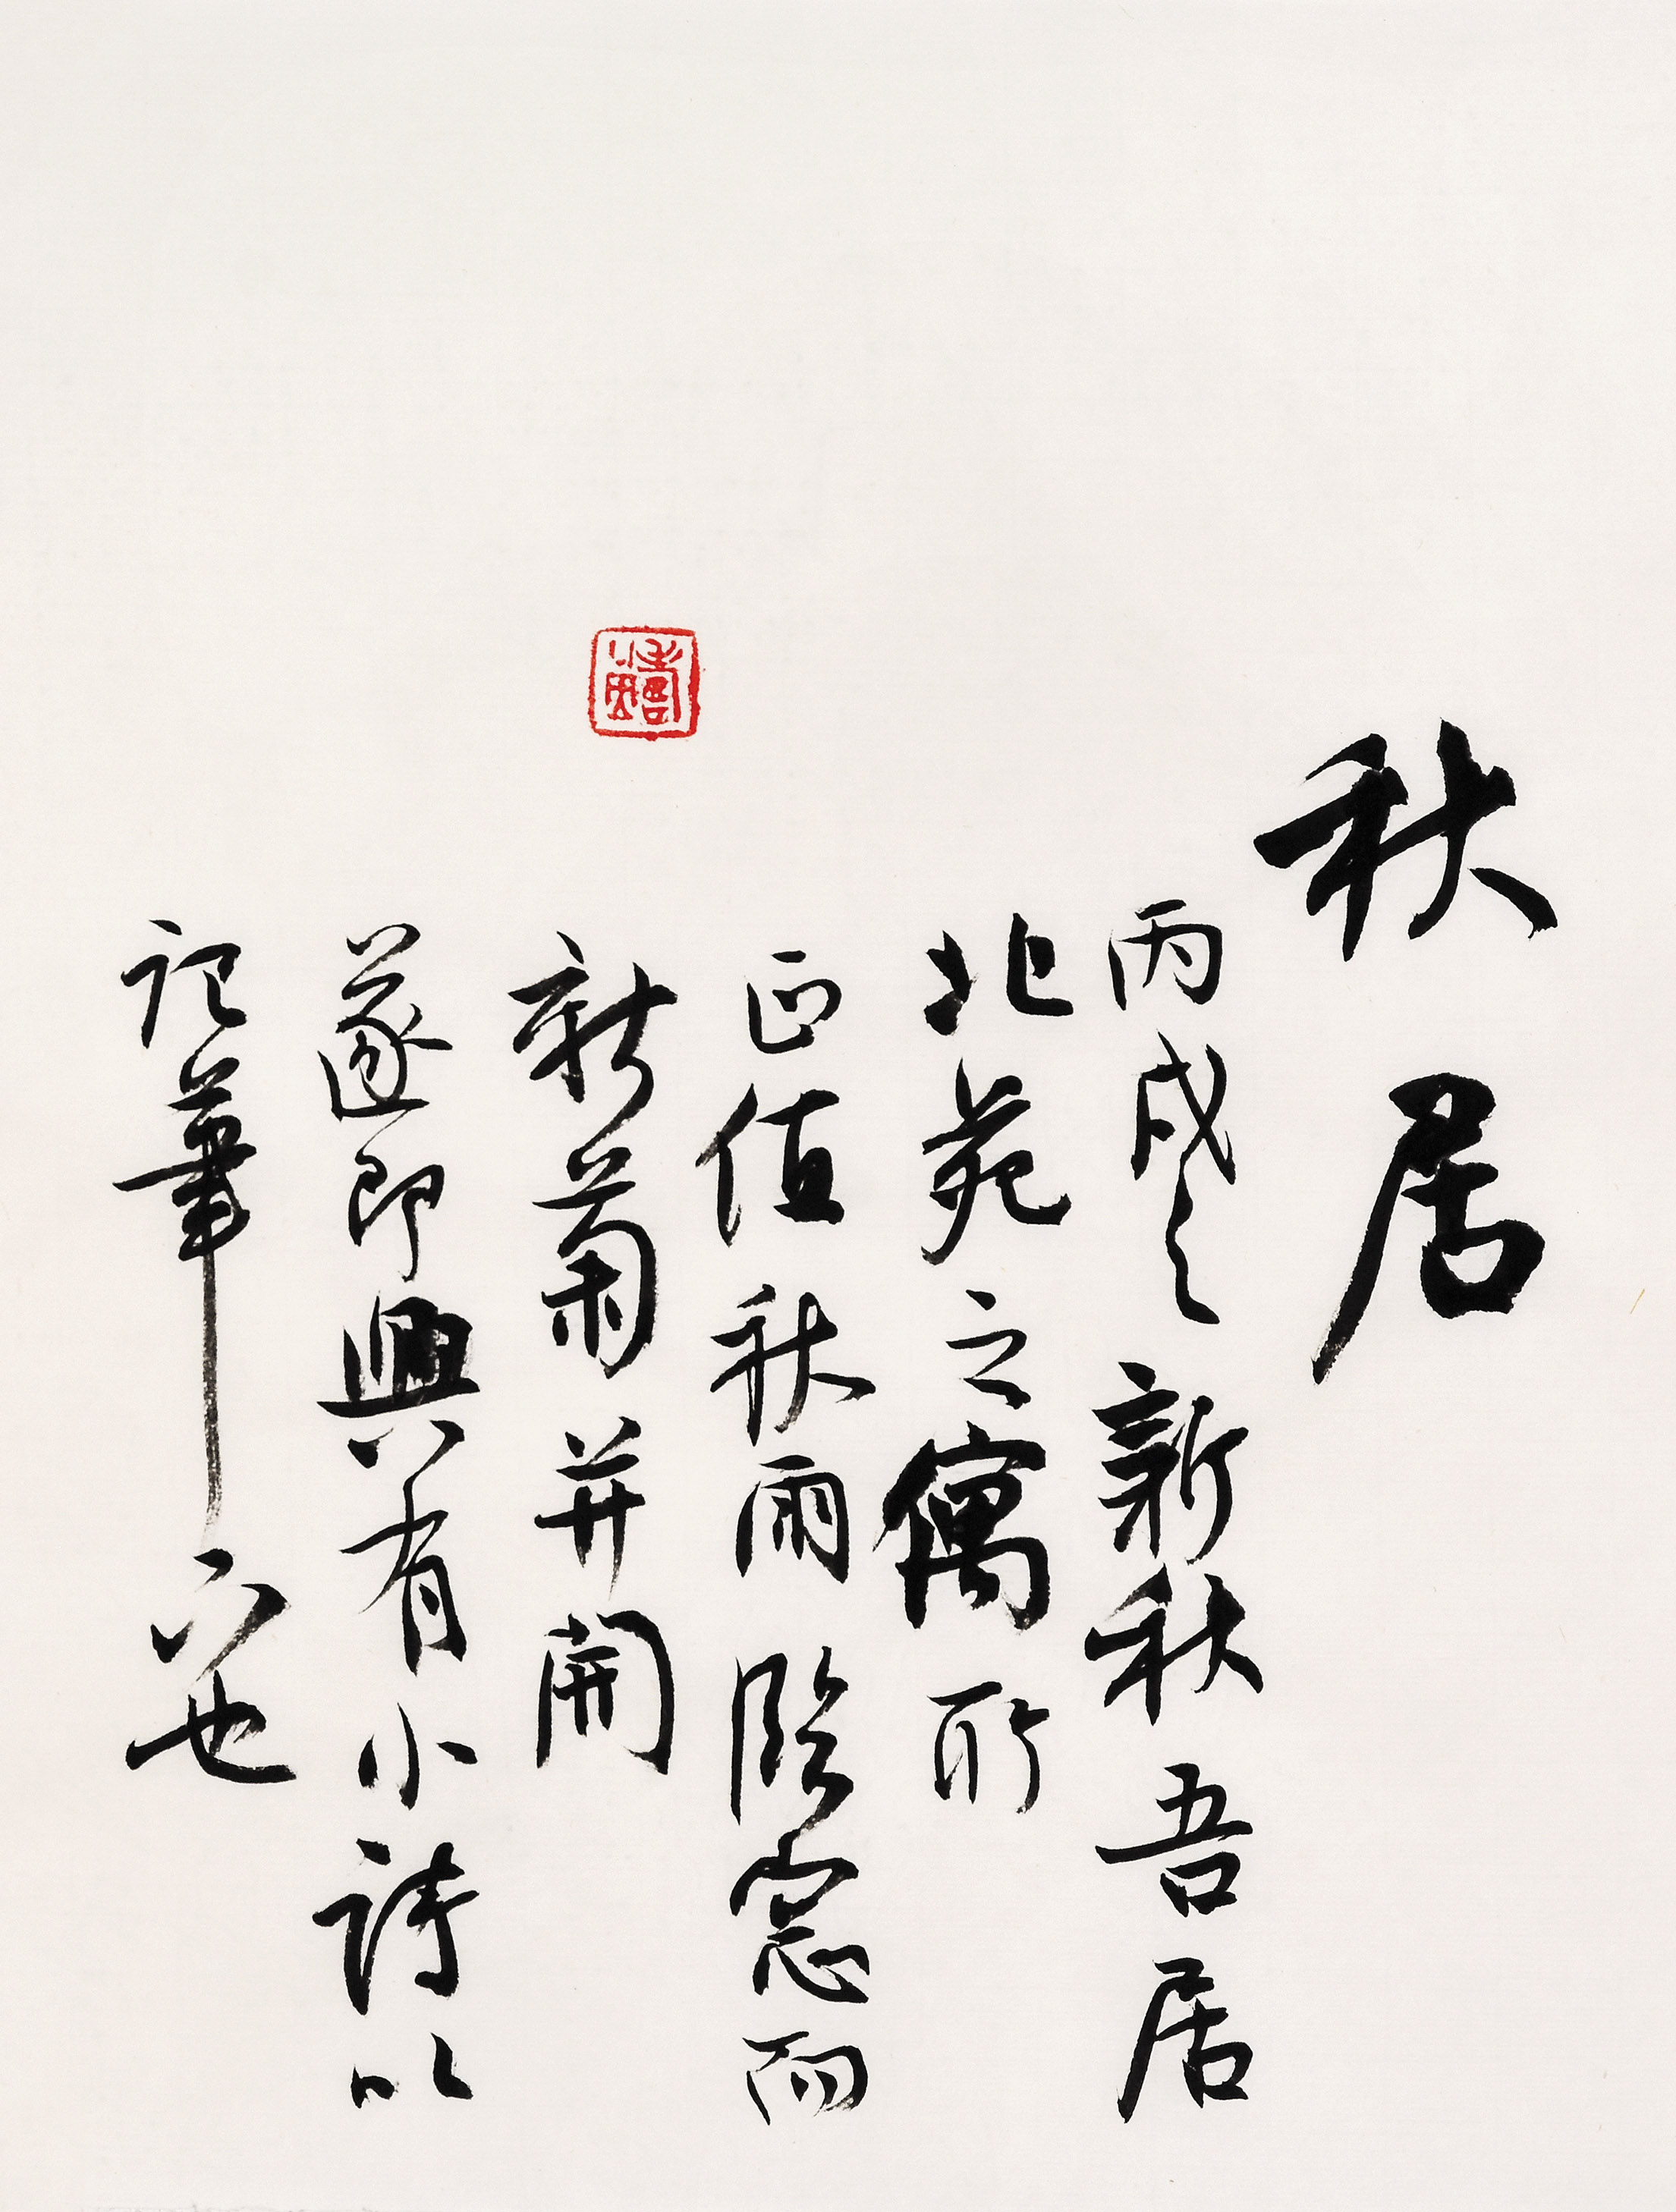 秋居
丙戌之新秋吾居
北苑之寓所
正值秋雨臨窓而
新菊并開
遂即興有小詩以
記筆下也